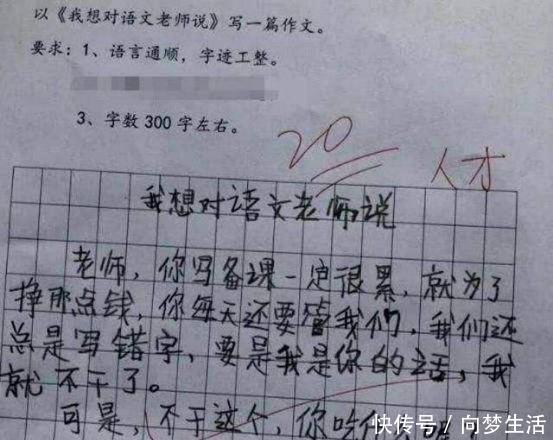 以《我想对语文老师说》写一篇作文。
要求：1、语言通顺，字迹工整。
3、字数 300 字左右。
20
人才
我想对语文老师说
老师，你写备课一定很累，就为了
挣那点钱，你每天还要管我们，我们还
总是写错字，要是我是你的话，我
就不干了。
可是，不干这个，你吃什
快传号 / 向梦生活